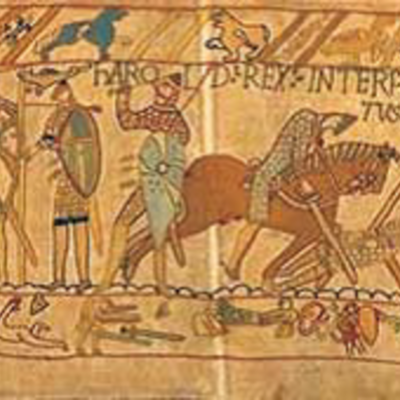 hAROLD:REX:INTERF
TUS